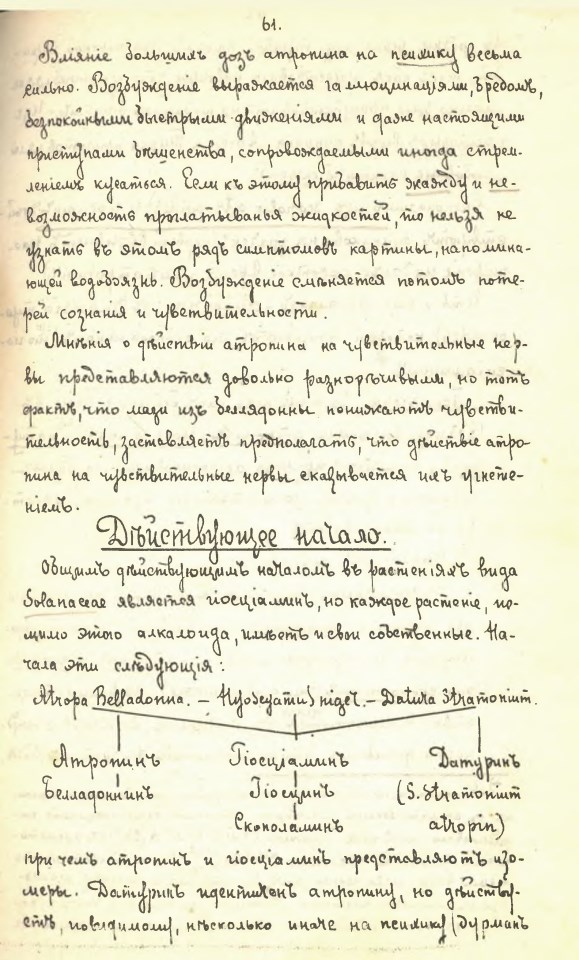 61.
Вліяніе большихъ дозъ атропина на психику весьма
сильно. Возбужденіе выражается галлюцинаціями, бредомъ,
безпокойными быстрыми движеніями и даже настоящими
приступами бѣшенства, сопровождаемыми иногда стрем-
леніемъ кусаться. Если къ этому прибавить жажду и не-
возможность проглатыванья жидкостей, то нельзя не
узнать въ этомъ рядѣ симптомовъ картины, напомина-
ющей водобоязнь. Возбужденіе смѣняется потомъ поте-
рей сознанія и чувствительности.
Мнѣнія о дѣйствіи атропина на чувствительные нер-
вы представляются довольно разнорѣчивыми, но тотъ
фактъ, что мази изъ белладонны понижаютъ чувстви-
тельность, заставляетъ предполагать, что дѣйствіе атро-
пина на чувствительные нервы сказывается ихъ угнете-
ніемъ.
Дѣйствующее начало.
Общимъ дѣйствующимъ началомъ въ растеніяхъ вида
Solanaceae является гіосціаминъ, но каждое растеніе, по-
мимо этого алкалоида, имѣетъ и свои собственные. На-
чала эти слѣдующія:
Atropa Belladonna. – Hyoscyamus niger. – Datura Stramonium.
Атропинъ Гіосціаминъ Датуринъ
Белладоннинъ Гіосцинъ (S. Stramonium
Скополаминъ atropin)
при чемъ атропинъ и гіосціаминъ представляютъ изо-
меры. Датуринъ идентиченъ атропину, но дѣйству-
етъ, повидимому, нѣсколько иначе на психику (дурманъ